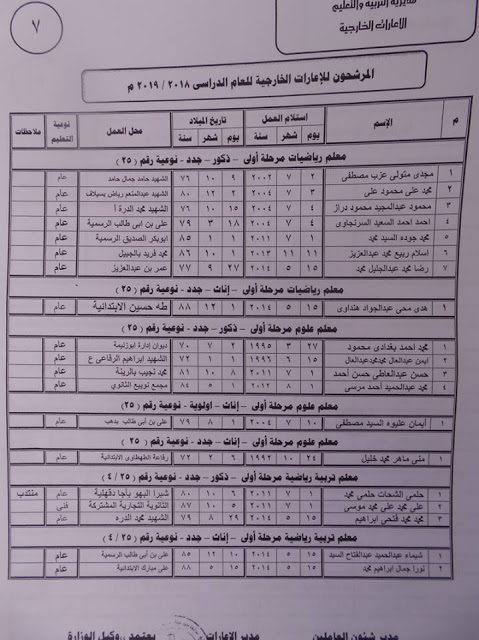 مديرية التربية والتعليم
الاعارات الخارجية
٧
المرشحون للإعارات الخارجية للعام الدراسى ٢٠١٨ / ٢٠١٩ م
م الإسم استلام العمل تاريخ الميلاد محل العمل نوعية التعليم ملاحظات
يوم شهر سنة يوم شهر سنة
معلم رياضيات مرحلة أولى - ذكور - جدد - نوعية رقم (٢٥)
١ مجدى متولى عزب مصطفى ٢ ٧ ٢٠٠٢ ٩ ١٠ ٧٦ الشهيد حامد جمال حامد عام
٢ محمد على محمود على ٣ ٧ ٢٠٠٤ ٢ ١٢ ٨٠ الشهيد عبدالمنعم رياض بسيلاف عام
٣ محمود عبدالمجيد محمود دراز ٤ ٧ ٢٠٠٤ ١٥ ١٠ ٧٦ الشهيد محمد الدرة أ عام
٤ احمد احمد السعيد السرنجاوى ٤ ٧ ٢٠٠٤ ١٨ ٣ ٧٩ على بن ابى طالب الرسمية عام
٥ محمد جوده السيد محمد ١ ٧ ٢٠١١ ١ ١ ٨٥ ابوبكر الصديق الرسمية عام
٦ اسلام ربيع محمد عبدالعزيز ١١ ١١ ٢٠١٣ ١ ١٠ ٨٦ محمد فريد بالجبيل عام
٧ رضا محمد عبدالجليل محمد ١٥ ٥ ٢٠١٤ ٢٧ ٩ ٧٧ عمر بن عبدالعزيز عام
معلم رياضيات مرحلة أولى - إناث - جدد - نوعية رقم (٢٥)
١ هدى محى عبدالجواد هنداوى ١٥ ٥ ٢٠١٤ ١ ١٢ ٨٨ طه حسين الابتدائية عام
معلم علوم مرحلة أولى - ذكور - جدد - نوعية رقم (٢٥)
١ محمد احمد بغدادى محمود ٢٧ ٣ ١٩٩٥ ٢ ٧ ٧٠ ديوان إدارة ابوزنيمة عام
٢ ايمن عبدالعال محمد محمد عبدالعال ١٥ ٦ ١٩٩٦ ١ ١ ٧٢ الشهيد ابراهيم الرفاعى ع عام
٣ حسن عبدالعاطى حسن أحمد ١ ٧ ٢٠١١ ٨ ١٠ ٨١ محمد نجيب بالرينة عام
٤ محمد عبدالحميد أحمد مرسى ١ ٨ ٢٠١٢ ١ ٥ ٨٤ مجمع نويبع الثانوي عام
معلم علوم مرحلة أولى - إناث - اولوية - نوعية رقم (٢٥)
١ أيمان عليوه السيد مصطفى ١٠ ٧ ٢٠٠٤ ١ ٨ ٧٩ على بن أبى طالب بدهب عام
معلم علوم مرحلة أولى - إناث - جدد - نوعية رقم (٢٥)
١ منى ماهر محمد خليل ٢٤ ١٠ ١٩٩٢ ٦ ٢ ٧٢ رفاعة الطهطاوى الابتدائية عام
معلم تربية رياضية مرحلة أولى - ذكور - جدد - نوعية رقم (٢٥ / ٤)
١ حلمى الشحات حلمى محمد ١ ٧ ٢٠١١ ٦ ١٠ ٨٠ شبرا البهو بأجا دقهلية عام منتدب
٢ على محمد على محمد موسى ١ ٧ ٢٠١١ ٥ ١٠ ٨٧ الثانوية التجارية المشتركة فنى
٣ محمد محمد فتحى ابراهيم ١٥ ٥ ٢٠١٤ ٢٩ ٨ ٧٩ الشهيد محمد الدره عام
معلم تربية رياضية مرحلة أولى - إناث - جدد - نوعية رقم (٢٥ / ٤)
١ شيماء عبدالحميد عبدالفتاح السيد ١٥ ٥ ٢٠١٤ ١٠ ١٢ ٨٥ على بن أبى طالب الرسمية عام
٢ نورا جمال ابراهيم محمد ١٥ ٥ ٢٠١٤ ١٥ ٥ ٨٨ على مبارك الابتدائية عام
مدير شئون العاملين مدير الإعارات يعتمد ,, وكيل الوزارة